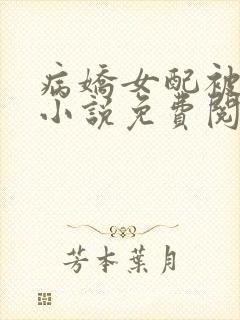 病嬌女配被
小說免費閱
芳本葉月